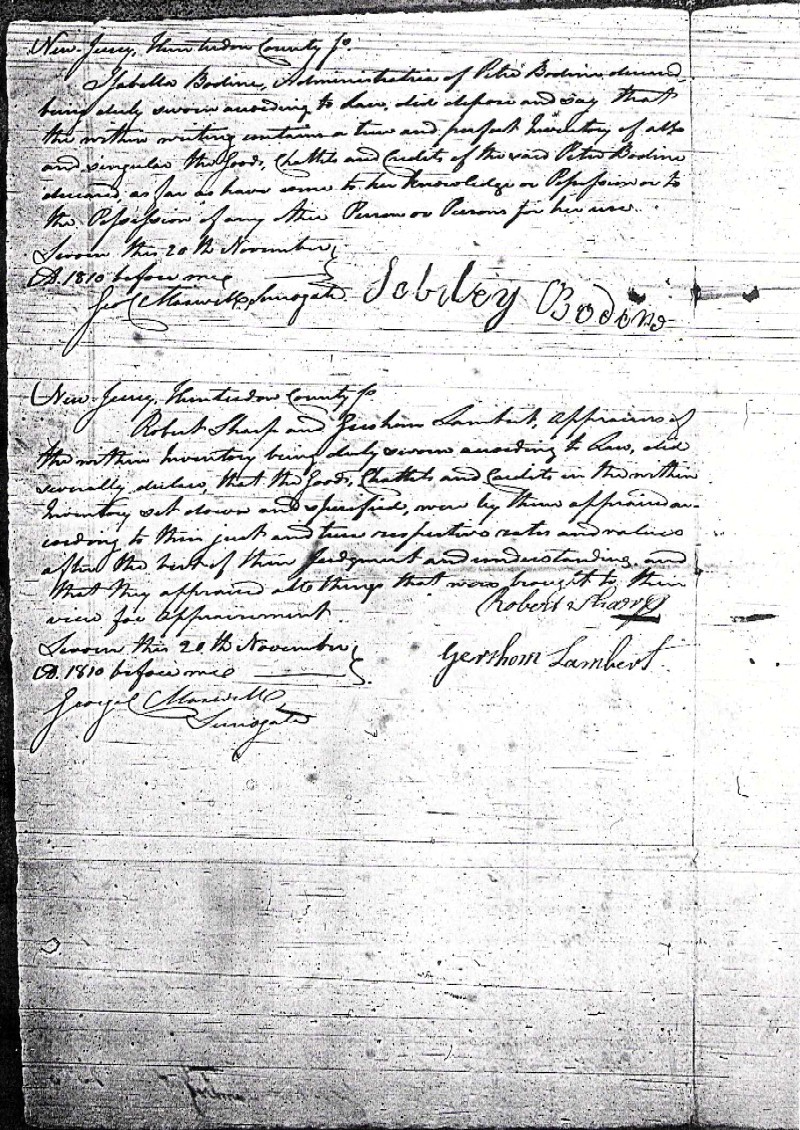 New-Jersey, Hunterdon County ss.
Isabella Bodine, Administratrix of Peter Bodine deceased
being duly sworn according to Law, did depose and say that
the within writing contains a true and perfect Inventory of all
and singular the Goods, Chattels and Credits of the said Peter Bodine
deceased, as far as have come to her knowledge or Possession or to
the Possession of any other Person or Persons for her use.
Sworn this 20th November
AD. 1810 before me
Geo C Maxwell, Surrogate
Sebiley Bodine
New-Jersey, Hunterdon County ss
Robert Sharp and Gershom Lambert, appraisers of
the within Inventory being duly sworn according to Law, did
severally declare, that the Goods, Chattels and Credits in the within
Inventory set down and specified, were by them appraised ac-
cording to their just and true respective rates and values
after the best of their judgment and understanding, and
that they appraised all things that were brought to their
view for appraisement.
Robert Sharp
Sworn this 20th November
AD. 1810 before me
Gershom Lambert
George C Maxwell
Surrogate